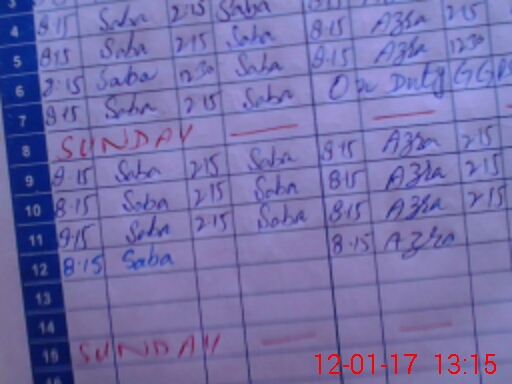 3
4 8:15 Saba 2:15 Saba
5 8:15 Saba 2:15 Saba 8:15 Azra 2:15
6 8:15 Saba 12:30 Saba 8:15 Azra 12:30
7 8:15 Saba 2:15 Saba On Duty
8 SUNDAY
9 8:15 Saba 2:15 Saba 8:15 Azra 2:15
10 8:15 Saba 2:15 Saba 8:15 Azra 2:15
11 8:15 Saba 2:15 Saba 8:15 Azra 2:15
12 8:15 Saba 8:15 Azra
13
14
15 SUNDAY
12-01-17 13:15